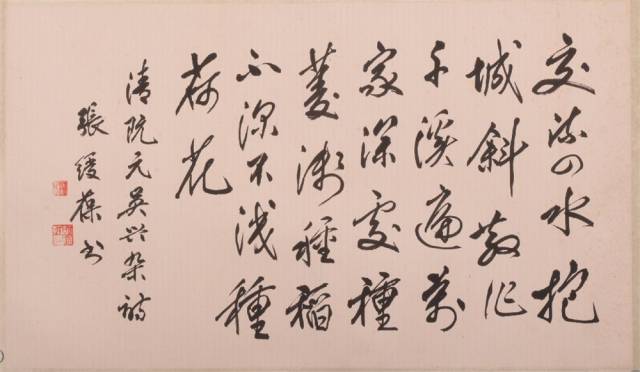 交流四水抱
城斜散作
千溪遍萬
家深處種
菱淺種稻
不深不浅種
荷花
清阮元吳兴杂詩
張綬葆书